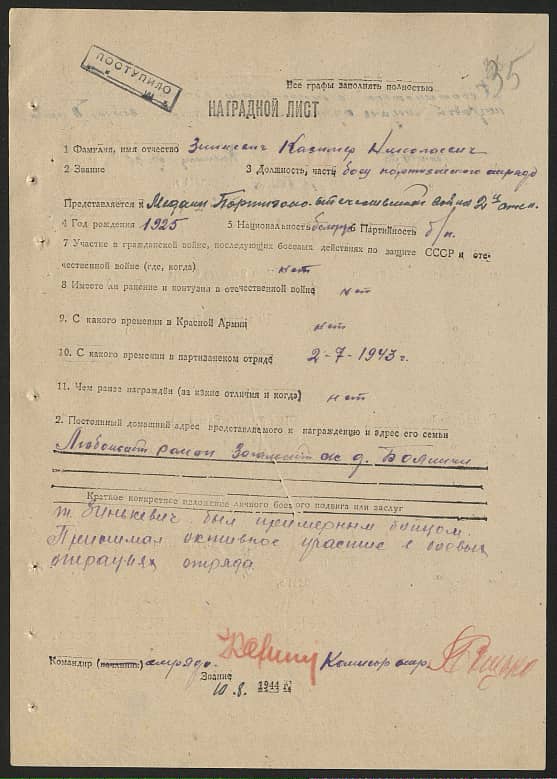 ПОСТУПИЛО
35
Все графы заполнять полностью
НАГРАДНОЙ ЛИСТ
1 Фамилия, имя отчество Зинкевич Казимер Николаевич
2 Звание 3 Должность, часть боец партизанского отряда
Представляется к Медали Партизано. отечественной войны 2й степ.
4 Год рождения 1925 5 Национальность белорус 6 Партийность б/п.
7 Участие в гражданской войне, последующих боевых действиях по защите СССР и оте-
чественной войне (где, когда) нет
8 Имеете ли ранение и контузия в отечественной войне нет
9. С какого времени в Красной Армии нет
10. С какого времени в партизанском отряде 2-7-1943 г.
11. Чем ранее награждён (за какие отличия и когда) нет
2. Постоянный домашний адрес представляемого к награждению и адрес его семьи
район д.
Краткое конкретное изложение личного боевого подвига или заслуг
т. Зинкевич был примерным бойцом.
Принимал активное участие в боевых
операциях отряда
Командир (начальник) отряда. Комисар отр.
Звание
10.8. 1944 г.